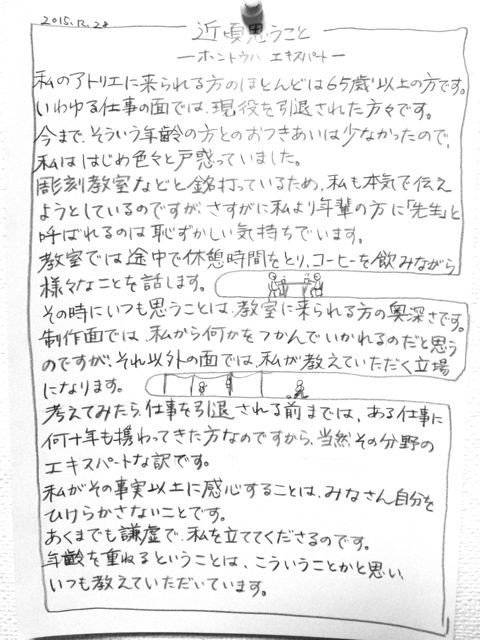 2015.12.28
近頃思うこと
―ホントウハ エキスパート―
私のアトリエに来られる方のほとんどは65歳以上の方です。
いわゆる仕事の面では、現役を引退された方々です。
今まで、そういう年齢の方とのおつきあいは少なかったので、
私ははじめ色々と戸惑っていました。
彫刻教室などと銘打っているため、私も本気で伝え
ようとしているのですが、さすがに私より年輩の方に「先生」と
呼ばれるのは恥ずかしい気持ちでいます。
教室では途中で休憩時間をとり、コーヒーを飲みながら
様々なことを話します。
その時にいつも思うことは、教室に来られる方の奥深さです。
制作面では、私から何かをつかんでいかれるのだと思う
のですが、それ以外の面では、私が教えていただく立場
になります。
考えてみたら、仕事を引退される前までは、ある仕事に
何十年も携わってきた方なのですから、当然その分野の
エキスパートな訳です。
私がその事実以上に感心することは、みなさん自分を
ひけらかさないことです。
あくまでも謙虚で、私を立ててくださるのです。
年齢を重ねるということは、こういうことかと思い、
いつも教えていただいています。